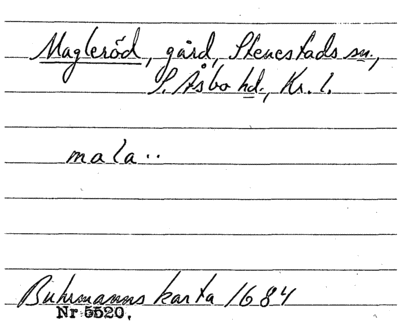 Magleröd, gård, Stenestads sn.,
S. Åsbo hd., Kr. l.
mala..
Buhrmanns karta 1684
Nr 5520.